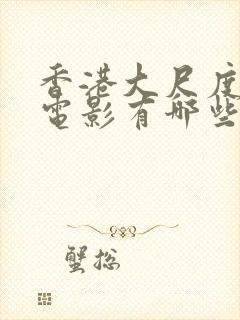 香港大尺度
电影有哪些
蟹总